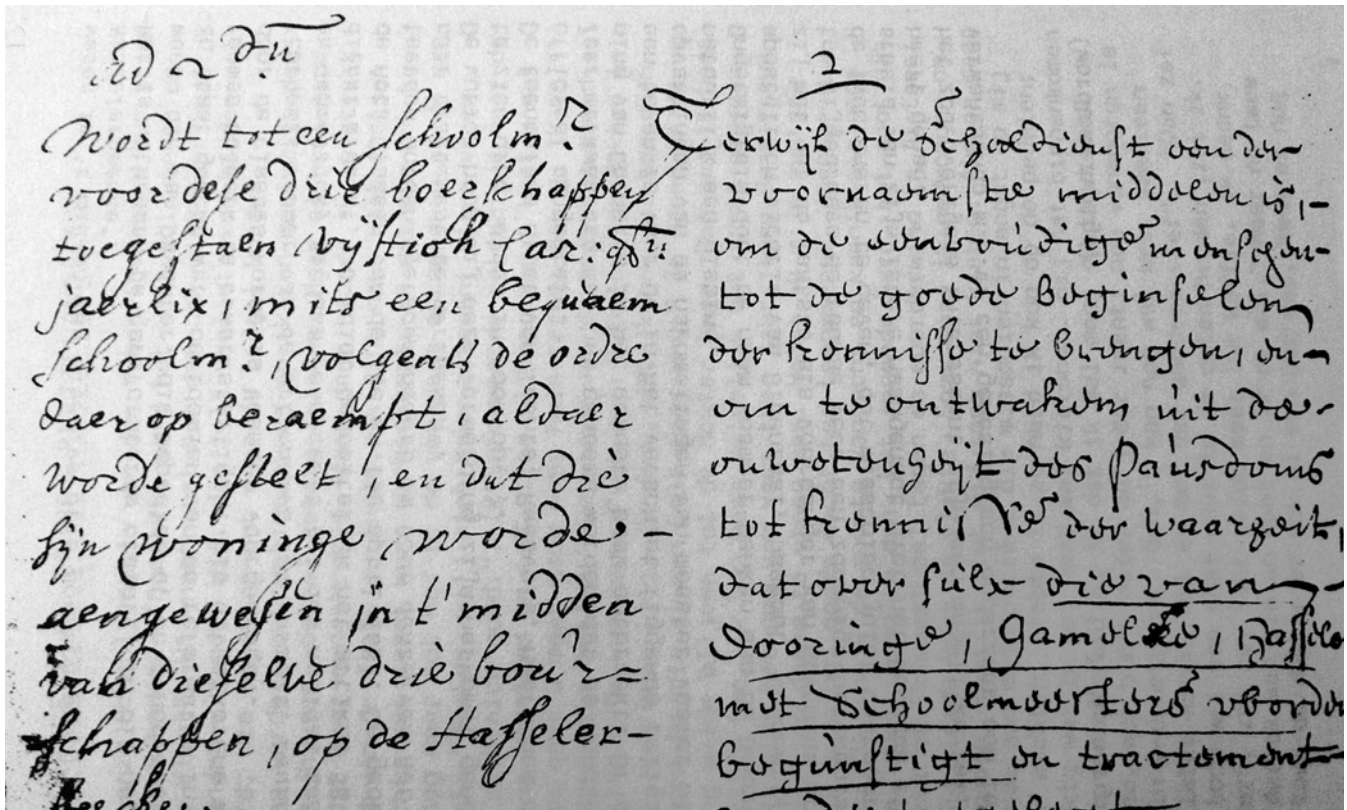 Ad 2dū
Wordt tot een schoolmr.
voor dese drie boerschappen
toegestaen vijftich Car: gū
jaerlix, mits een bequaem
schoolmr., volgents de ordre
daer op beraempt, aldaer
worde gestelt, en dat die
sijn woninge worde -
aengewesen in t' midden
van dieselve drie bour=
schappen, op de Hasseler-
2
Terwijl de Schoeldienst een der-
voornaemste middelen is,-
om de eenvoudige menschen-
tot de goede beginselen
der kennisse te brengen, en-
om te ontwaken uit de-
onwetenheijt des Pausdoms
tot kennisse der waarheit,
dat over sulx die van -
Dooringe, Gamelke, Hasselo
met Schoolmeesters worden
begunstigt en tractement-